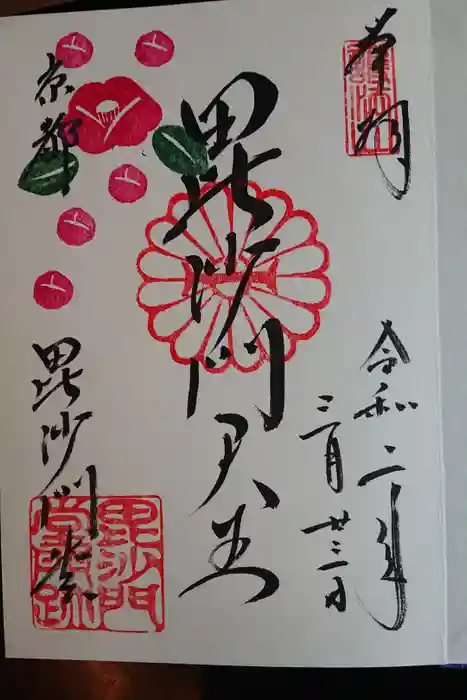 奉拝
令和二年
三月廿三日
毘沙門天王
京都
毘沙門堂